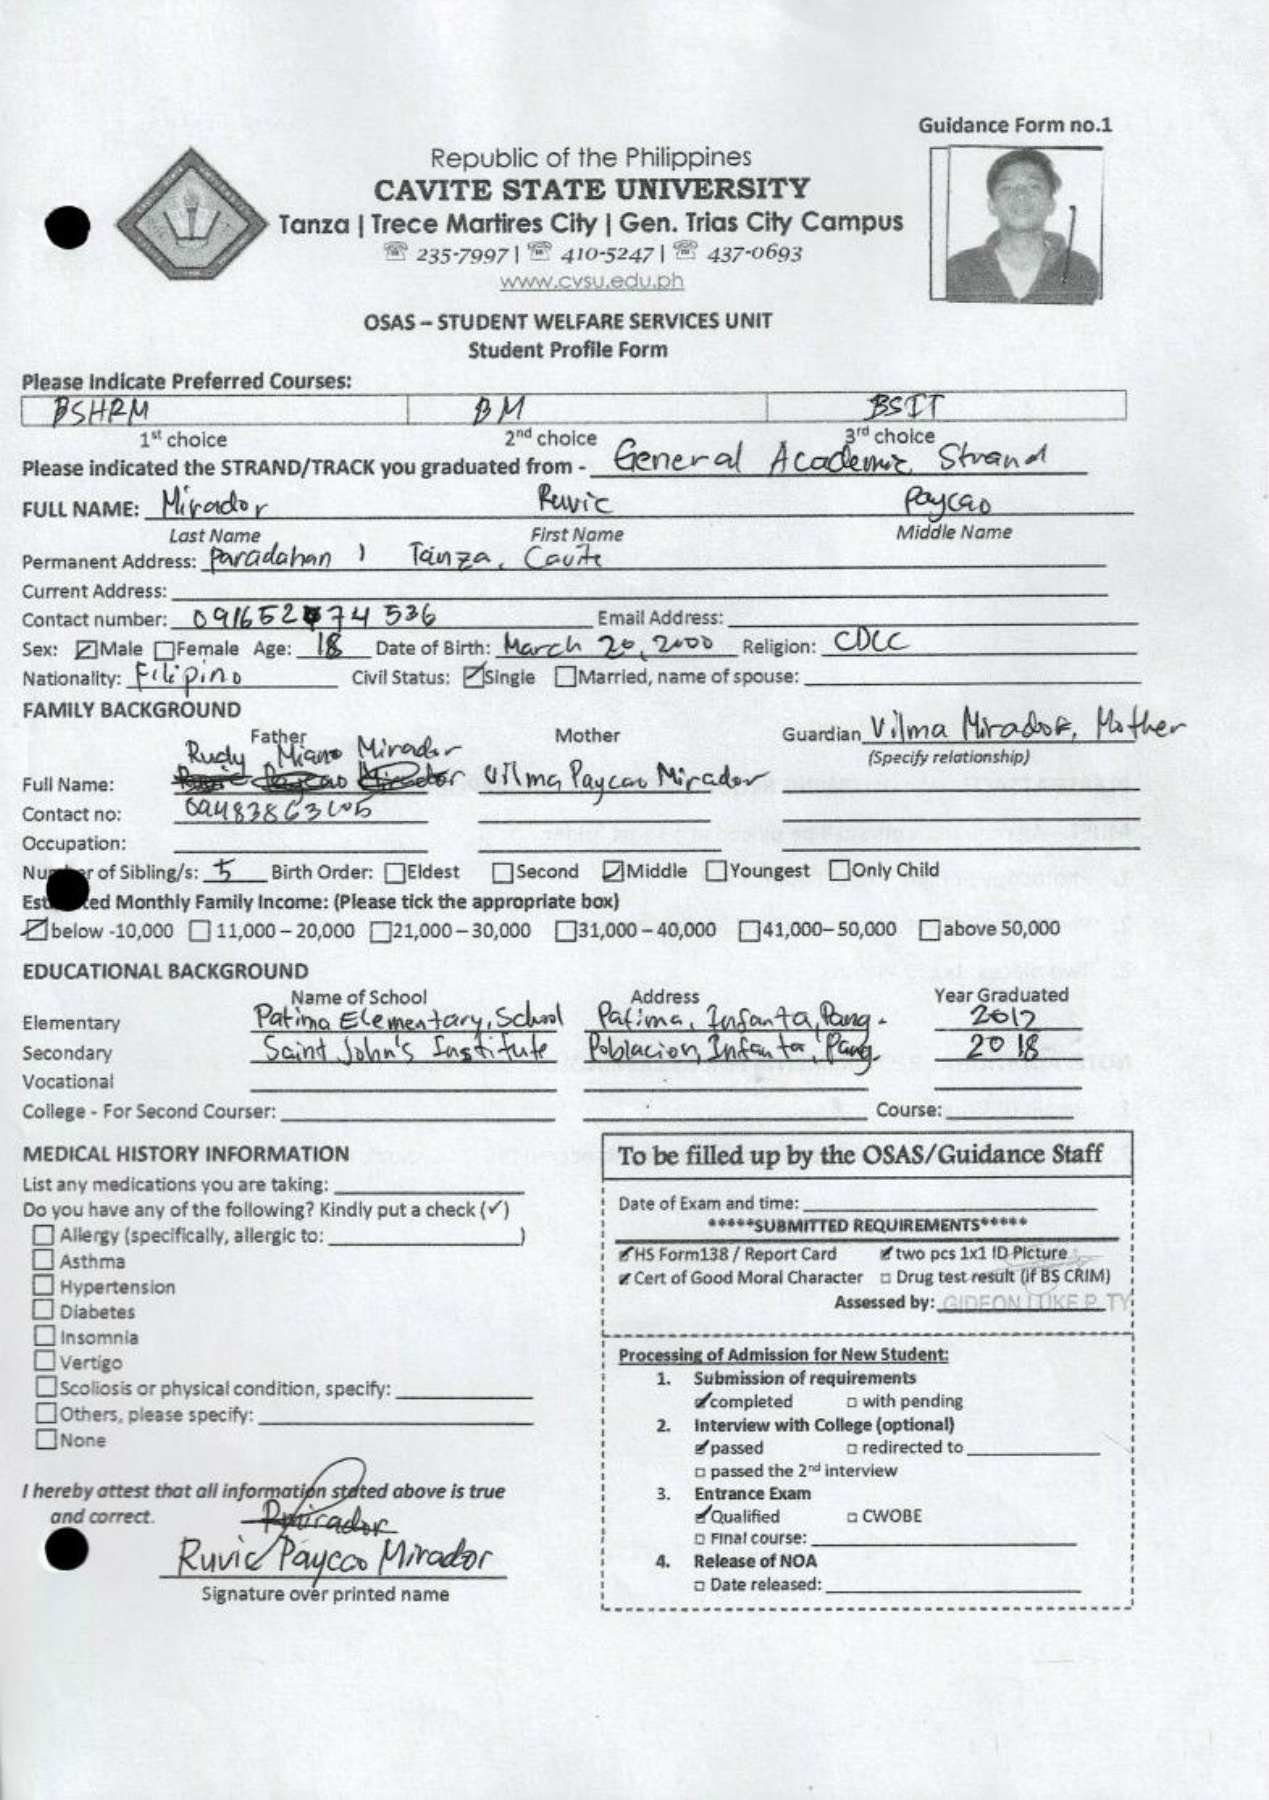 Guidance Form no.1
Republic of the Philippines
CAVITE STATE UNIVERSITY
Tanza | Trece Martires City | Gen. Trias City Campus
☏ 235-7997 | ☏ 410-5247 | ☏ 437-0693
www.cvsu.edu.ph
OSAS – STUDENT WELFARE SERVICES UNIT
Student Profile Form
Please Indicate Preferred Courses:
BSHRM BM BSIT
1st choice 2nd choice 3rd choice
Please indicated the STRAND/TRACK you graduated from - General Academic Strand
FULL NAME: Mirador Ruvic Paycao
Last Name First Name Middle Name
Permanent Address: Paradahan 1 Tanza, Cavite
Current Address:
Contact number: 09165274536 Email Address:
Sex: ☑Male ☐Female Age: 18 Date of Birth: March 20, 2000 Religion: CDCC
Nationality: Filipino Civil Status: ☑Single ☐Married, name of spouse:
FAMILY BACKGROUND
Father Mother Guardian Vilma Mirador, Mother
(Specify relationship)
Rudy Miano Mirador
Full Name: Vilma Paycao Mirador
Contact no:
Occupation:
Number of Sibling/s: 5 Birth Order: ☐Eldest ☐Second ☑Middle ☐Youngest ☐Only Child
Monthly Family Income: (Please tick the appropriate box)
☑below -10,000 ☐11,000 – 20,000 ☐21,000 – 30,000 ☐31,000 – 40,000 ☐41,000– 50,000 ☐above 50,000
EDUCATIONAL BACKGROUND
Name of School Address Year Graduated
Elementary Patima Elementary School Patima, Infanta, Pang. 2012
Secondary Saint John's Institute Poblacion, Infanta, Pang. 2018
Vocational
College - For Second Courser: Course:
MEDICAL HISTORY INFORMATION
List any medications you are taking:
Do you have any of the following? Kindly put a check (✓)
☐ Allergy (specifically, allergic to: )
☐ Asthma
☐ Hypertension
☐ Diabetes
☐ Insomnia
☐ Vertigo
☐ Scoliosis or physical condition, specify:
☐ Others, please specify:
☐ None
I hereby attest that all information stated above is true
and correct.
Rmirador
Ruvic Paycao Mirador
Signature over printed name
To be filled up by the OSAS/Guidance Staff
Date of Exam and time:
*****SUBMITTED REQUIREMENTS*****
☑HS Form138 / Report Card ☑two pcs 1x1 ID Picture
☑Cert of Good Moral Character ☐ Drug test result (if BS CRIM)
Assessed by: GIDEON LUKE P. TY
Processing of Admission for New Student:
1. Submission of requirements
☑completed ☐ with pending
2. Interview with College (optional)
☑passed ☐ redirected to
☐ passed the 2nd interview
3. Entrance Exam
☑Qualified ☐ CWOBE
☐ Final course:
4. Release of NOA
☐ Date released: